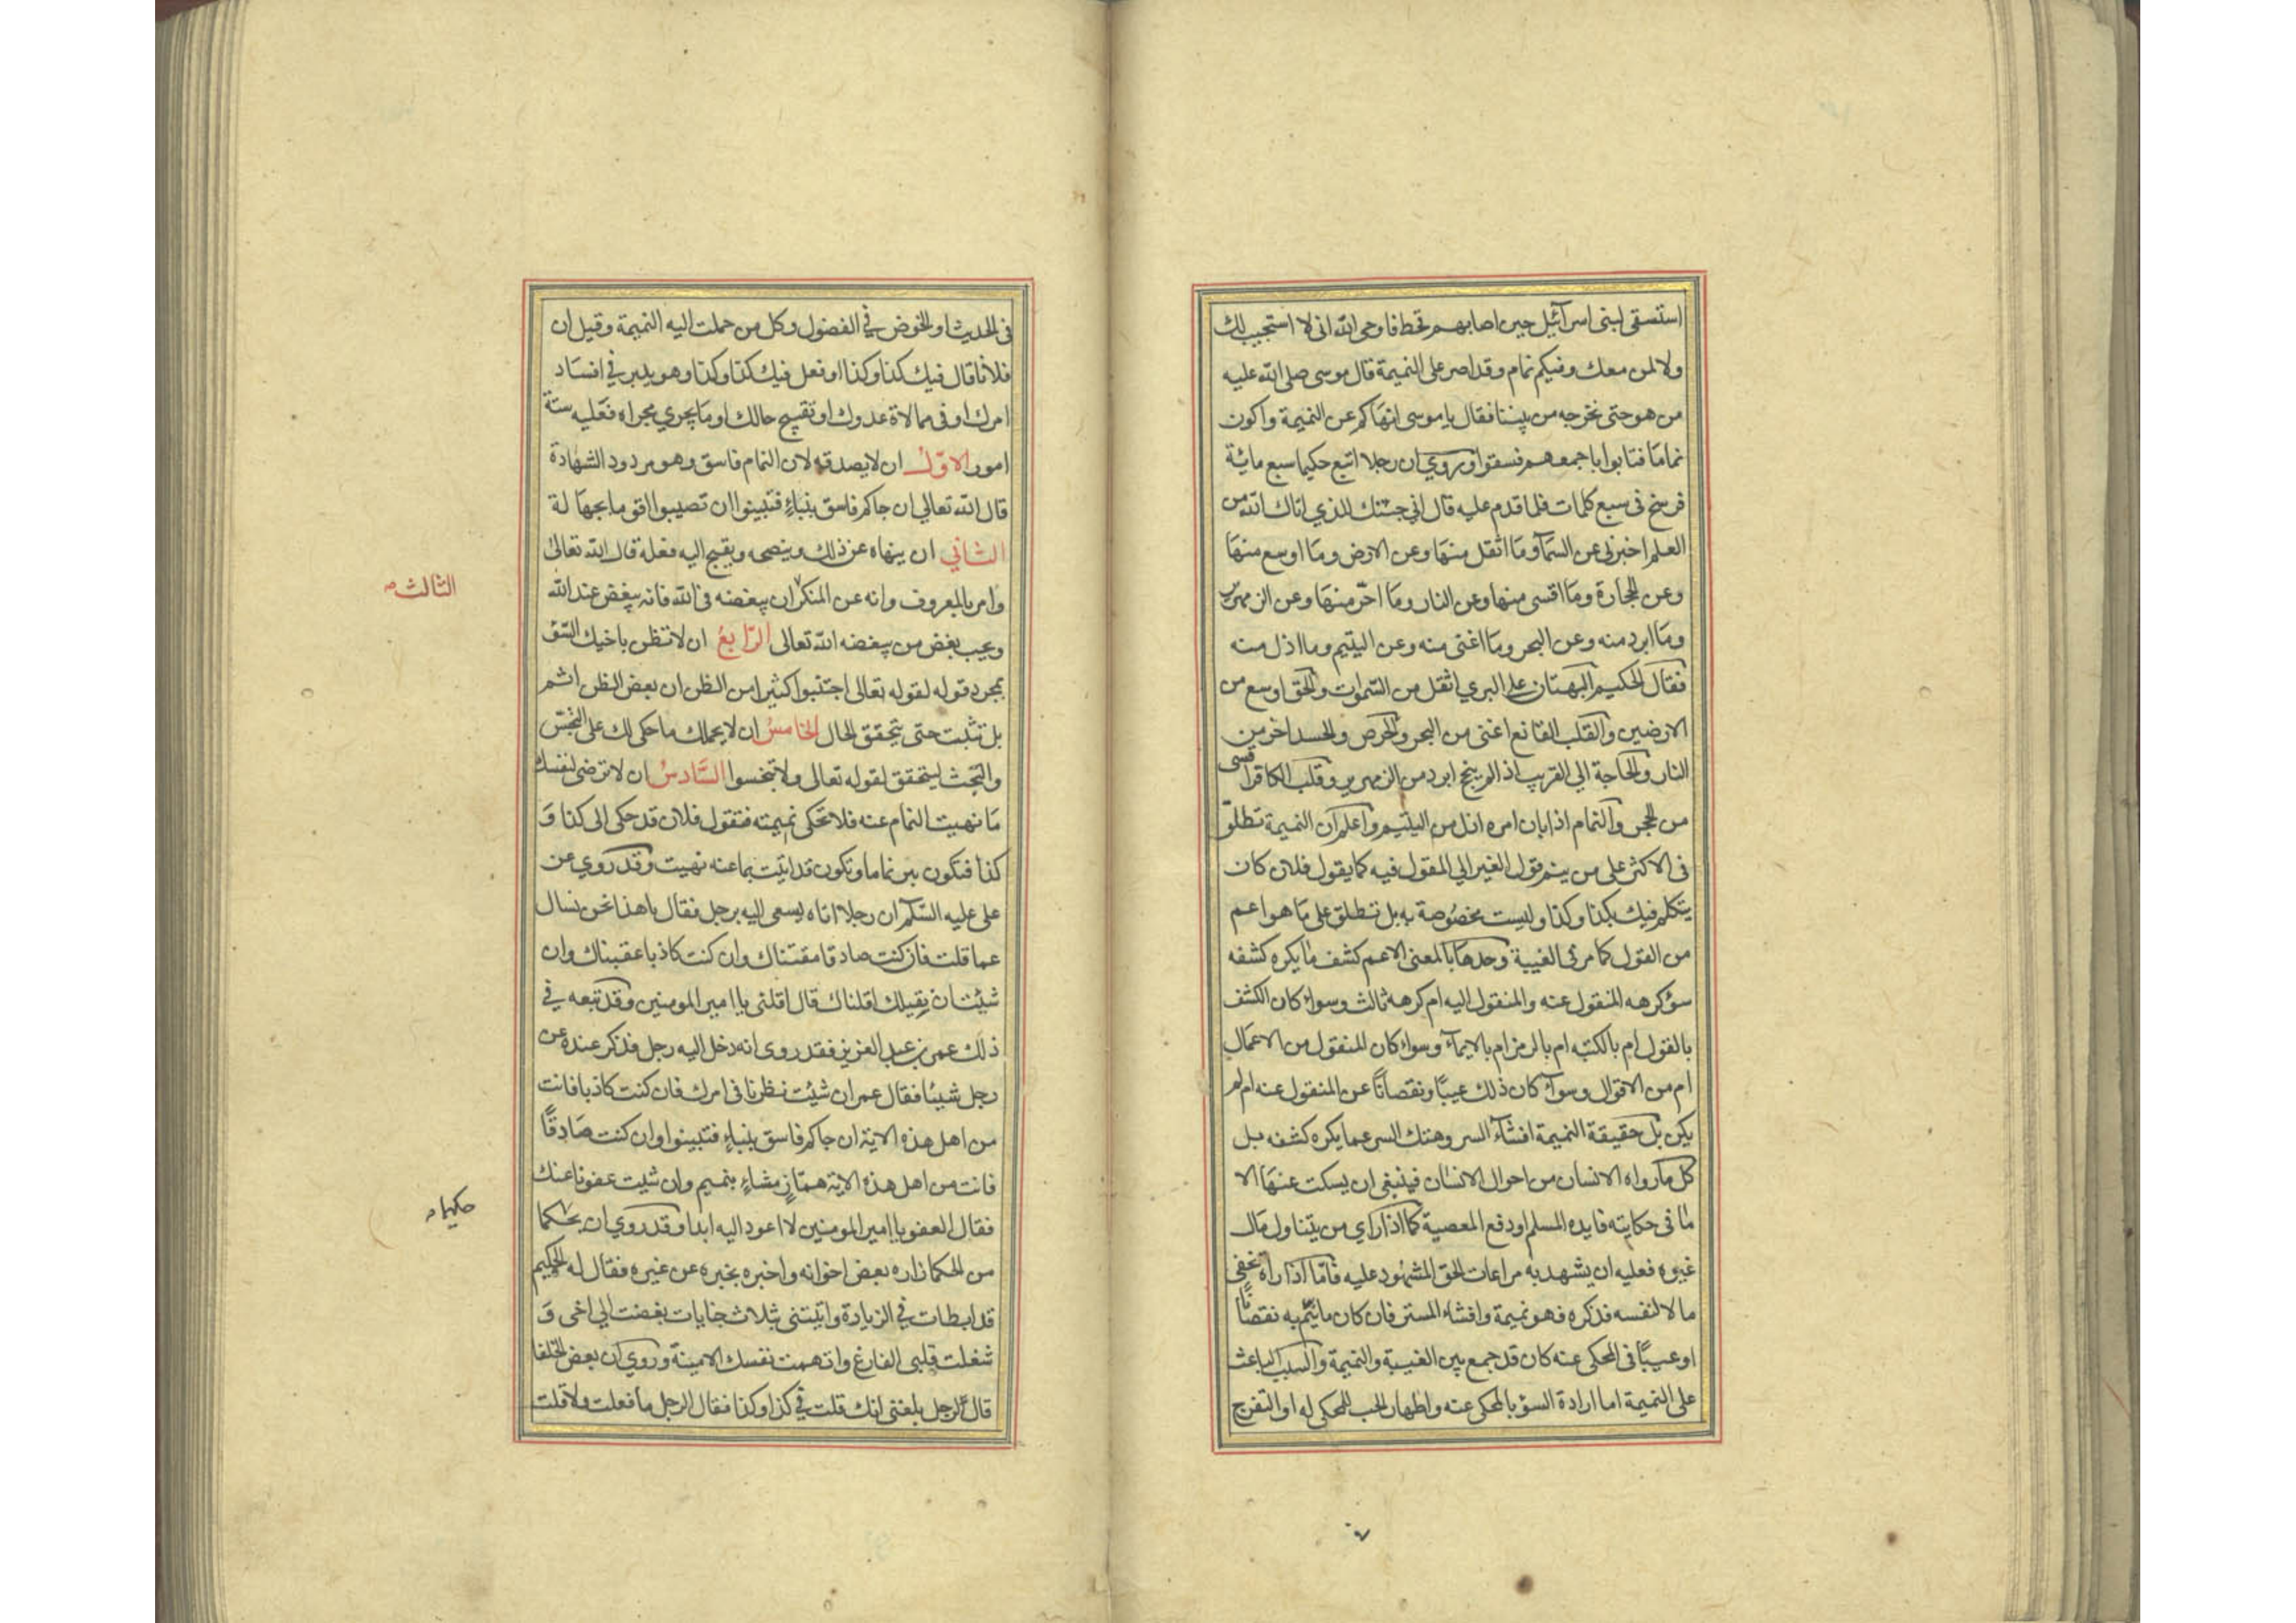 استسقى لبنى اسرآئيل حين اصابهم قحط فاوحى الله انى لا استجيب لك
ولا لمن معك وفيكم نمام وقد اصر على النميمة قال موسى صلى الله عليه
من هو حتى نخرجه من بيننا فقال يا موسى انهاكم عن النميمة واكون
نماما فتابوا باجمعهم فسقوا وروي ان رجلا اتبع حكيما سبع مائة
فرسخ فى سبع كلمات فلما قدم عليه قال اني جئتك للذي اتاك الله من
العلم اخبرنى عن السمآء وما اثقل منها وعن الارض وما اوسع منها
وعن الحجارة وما اقسى منها وعن النار وما احرّ منها وعن الزمهرير
وما ابرد منه وعن البحر وما اغنى منه وعن اليتيم وما اذل منه
فقال الحكيم البهتان على البري اثقل من السموات والحق اوسع من
الارضين والقلب القانع اغنى من البحر والحرص والحسد احر من
النار والحاجة الي القريب اذا لم ينجح ابرد من الزمهرير وقلب الكافر اقسى
من الحجر والنمام اذا بان امره اذل من اليتيم واعلم ان النميمة تطلق
فى الاكثر على من ينم قول الغير الي المقول فيه كما يقول فلان كان
يتكلم فيك بكذا وكذا وليست مخصوصة به بل تطلق على ما هو اعم
من القول كما مر فى الغيبة وحدها بالمعنى الاعم كشف ما يكره كشفه
سؤ كرهه المنقول عنه والمنقول اليه ام كرهه ثالث وسواء كان الكشف
بالقول ام بالكتبه ام بالرمز ام بالايمآء وسواء كان المنقول من الاعمال
ام من الاقوال وسوآء كان ذلك عيبًا ونقصانًا عن المنقول عنه ام لم
يكن بل حقيقة النميمة افشآء السر وهتك السر عما يكره كشفه بل
كل ما رواه الانسان من احوال الانسان فينبغى ان يسكت عنها الا
ما فى حكايته فايده المسلم او دفع المعصية كما اذا راي من يتناول مال
غيره فعليه ان يشهد به مراعات الحق المشهود عليه فامّا اذا راه يخفى
مالا لنفسه فذكره فهو نميمة وافشاء المستر فان كان ما ينمّ به نقصانًا
او عيبًا فى المحكى عنه كان قد جمع بين الغيبة والنميمة والسبب الباعث
على النميمة اما ارادة السؤ بالمحكى عنه واظهار الحب للمحكى له او التفرج
فى الحديث او الخوض في الفضول وكل من حملت اليه النميمة وقيل ان
فلانا قال فيك كذا وكذا او فعل فيك كذا وكذا وهو يدبر في افساد
امرك او فى ممالاة عدوك او تقبيح حالك او ما يجري مجراه فعليه ستة
امور الاوّل ان لا يصدقه لان النمام فاسق وهو مردود الشهادة
قال الله تعالى ان جاكم فاسق بنباءٍ فتبينوا ان تصيبوا اقوما بجهالة
الثاني ان ينهاه عن ذلك وينصحه ويقبح اليه فعله قال الله تعالى
وامر بالمعروف وانه عن المنكر ان يبغضه فى الله فانه يبغض عند الله
ويجب بغض من يبغضه الله تعالى الرّابعُ ان لا تظن باخيك السّؤ
بمجرد قوله لقوله تعالى اجتنبوا كثيرا من الظن ان بعض الظن اثم
بل تثبت حتى يتحقق الحال الخامسُ ان لا يحملك ما حكى لك على التجسّس
والبحث ليتحقق لقوله تعالى ولا تجسسوا السّادسُ ان لا ترضى لنفسك
ما نهيت النمام عنه فلا تحكى نميمته فتقول فلان قد حكى الى كذا و
كذا فتكون به نماما وتكون قد اتيت بما عنه نهيت وقد روي عن
على عليه السّلام ان رجلا اتاه يسعى اليه برجل فقال يا هذا نحن نسال
عما قلت فان كنت صادقا مقتناك وان كنت كاذبا عاقبناك وان
شئت ان نقيلك اقلناك قال اقلنى يا امير المومنين وقد تبعه في
ذلك عمر بن عبد العزيز فقد روى انه دخل اليه رجل فذكر عنده عن
رجل شيئا فقال عمر ان شئت نظرنا فى امرك فان كنت كاذبا فانت
من اهل هذه الاية ان جاكم فاسق بنباءٍ فتبينوا وان كنت صادقًا
فانت من اهل هذه الاية همّازٍ مشاءٍ بنميم وان شئت عفونا عنك
فقال العفو يا امير المومنين لا اعود اليه ابدا وقد روي ان حكما
من الحكما زاره بعض اخوانه واخبره بخبره عن غيره فقال له الحكيم
قد ابطات في الزيادة واتيتنى بثلاث جنايات بغضت الي اخى و
شغلت قلبى الفارغ واتهمت نفسك الامينة وروي ان بعض الخلفا
قال لرجل بلغنى انك قلت في كذا وكذا فقال الرجل ما فعلت ولا قلت
الثالث
حكيما